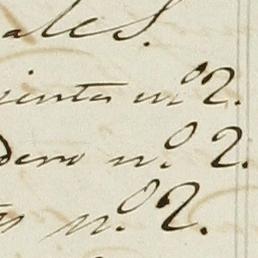 ales.
ienta nº 2.
dero nº 2.
nº 2.